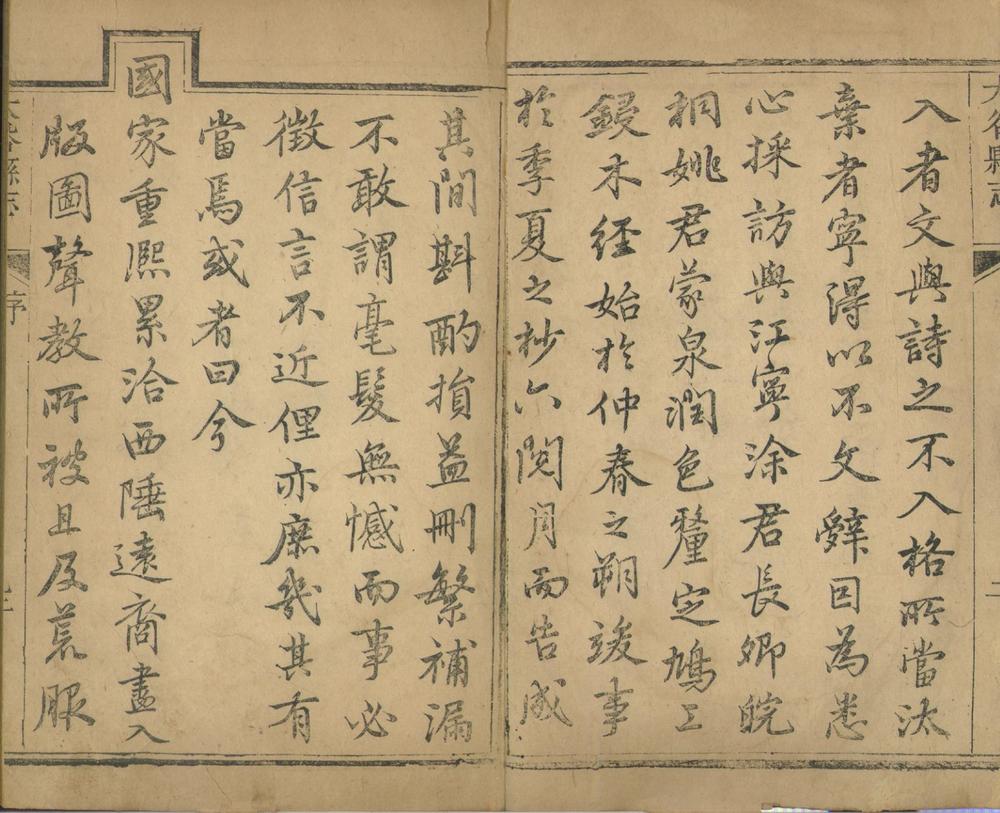 大谷縣志
入者文與詩之不入格所當汰
棄者寧得以不文辭因為悉
心採訪與江寧涂君長卿皖
桐姚君蒙泉潤色釐定鳩工
鋟木經始於仲春之朔竣事
於季夏之抄六閱月而告成
其間斟酌損益刪繁補漏
不敢謂毫髮無憾而事必
徵信言不近俚亦庶幾其有
當焉或者曰今
國家重熙累洽西陲遠裔盡入
版圖聲教所被且及荒服
縣志
序